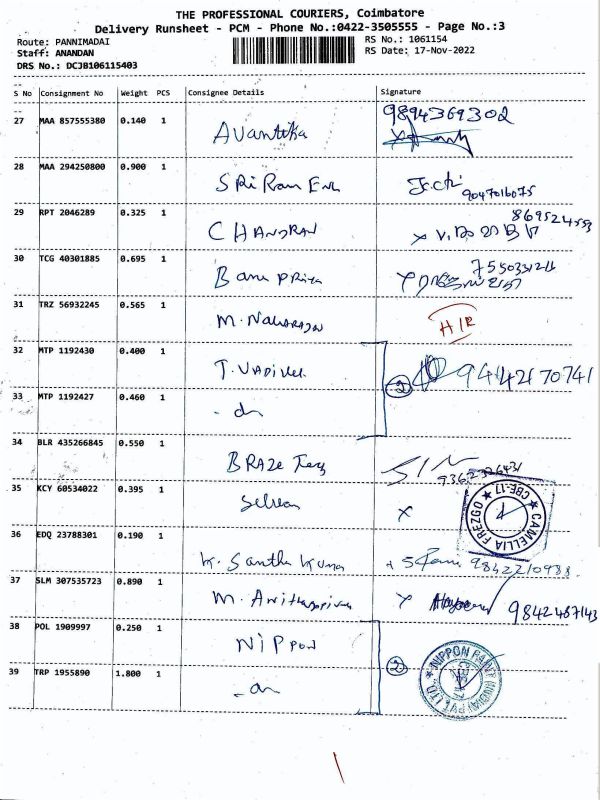 THE PROFESSIONAL COURIERS, Coimbatore
Delivery Runsheet - PCM - Phone No.:0422-3505555 - Page No.:3
Route: PANNIMADAI RS No.: 1061154
Staff: ANANDAN RS Date: 17-Nov-2022
DRS No.: DCJB106115403
S No Consignment No Weight PCS Consignee Details Signature
27 MAA 857555380 0.140 1 Avantika 9894369302
28 MAA 294250800 0.900 1 Sri Ram Eng 9047016075
29 RPT 2046289 0.325 1 CHANDRAN
30 TCG 40301885 0.695 1 Banu Priya
31 TRZ 56932245 0.565 1 M. H/R
32 MTP 1192430 0.400 1 T. Vadivel 2 9442170741
33 MTP 1192427 0.460 1 - do
34 BLR 435266845 0.550 1 BRAZE
35 KCY 60534022 0.395 1 Selvan x CAMELLIA FREZGO CBE-17
36 EDQ 23788301 0.190 1 K. Santha Kumar
37 SLM 307535723 0.890 1 M. 9842487143
38 POL 1909997 0.250 1 NIPPON 2 NIPPON PAINT (INDIA) PVT LTD
39 TRP 1955890 1.800 1 - do